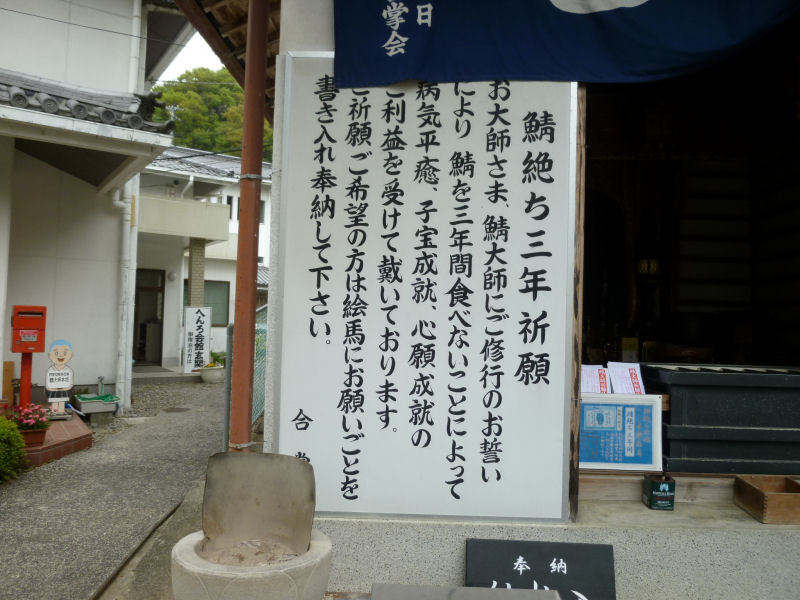 日
掌会
鯖絶ち三年祈願
お大師さま、鯖大師にご修行のお誓い
により 鯖を三年間食べないことによって
病気平癒、子宝成就、心願成就の
ご利益を受けて戴いております。
ご祈願、ご希望の方は絵馬にお願いごとを
書き入れ奉納して下さい。
合掌
へんろ会館玄関
奉納